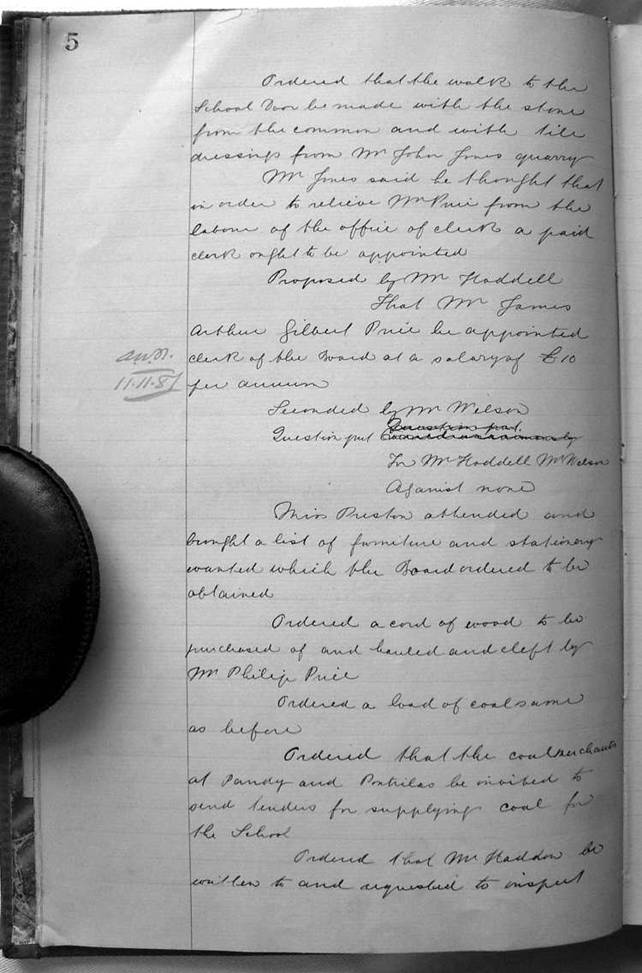 5
Ordered that the walk to the
School Door be made with the stone
from the common and with tile
dressings from Mr John Jones quarry
Mr Jones said he thought that
in order to relieve Mr Price from the
labour of the office of clerk a paid
clerk ought to be appointed
Proposed by Mr Haddell
That Mr James
Arthur Gilbert Price be appointed
clerk of the Board at a salary of £10
11.11.81
per annum
Seconded by Mr Wilson
Question put
Question put Carried unanimously
For Mr Haddell Mr Wilson
Against none
Miss Preston attended and
brought a list of furniture and stationery
wanted which the Board ordered to be
obtained
Ordered a cord of wood to be
purchased of and hauled and cleft by
Mr Philip Price
Ordered a load of coal same
as before
Ordered that the coal merchants
at Pandy and Pontrilas be invited to
send tenders for supplying coal for
the School
Ordered that Mr Haddon be
written to and requested to inspect